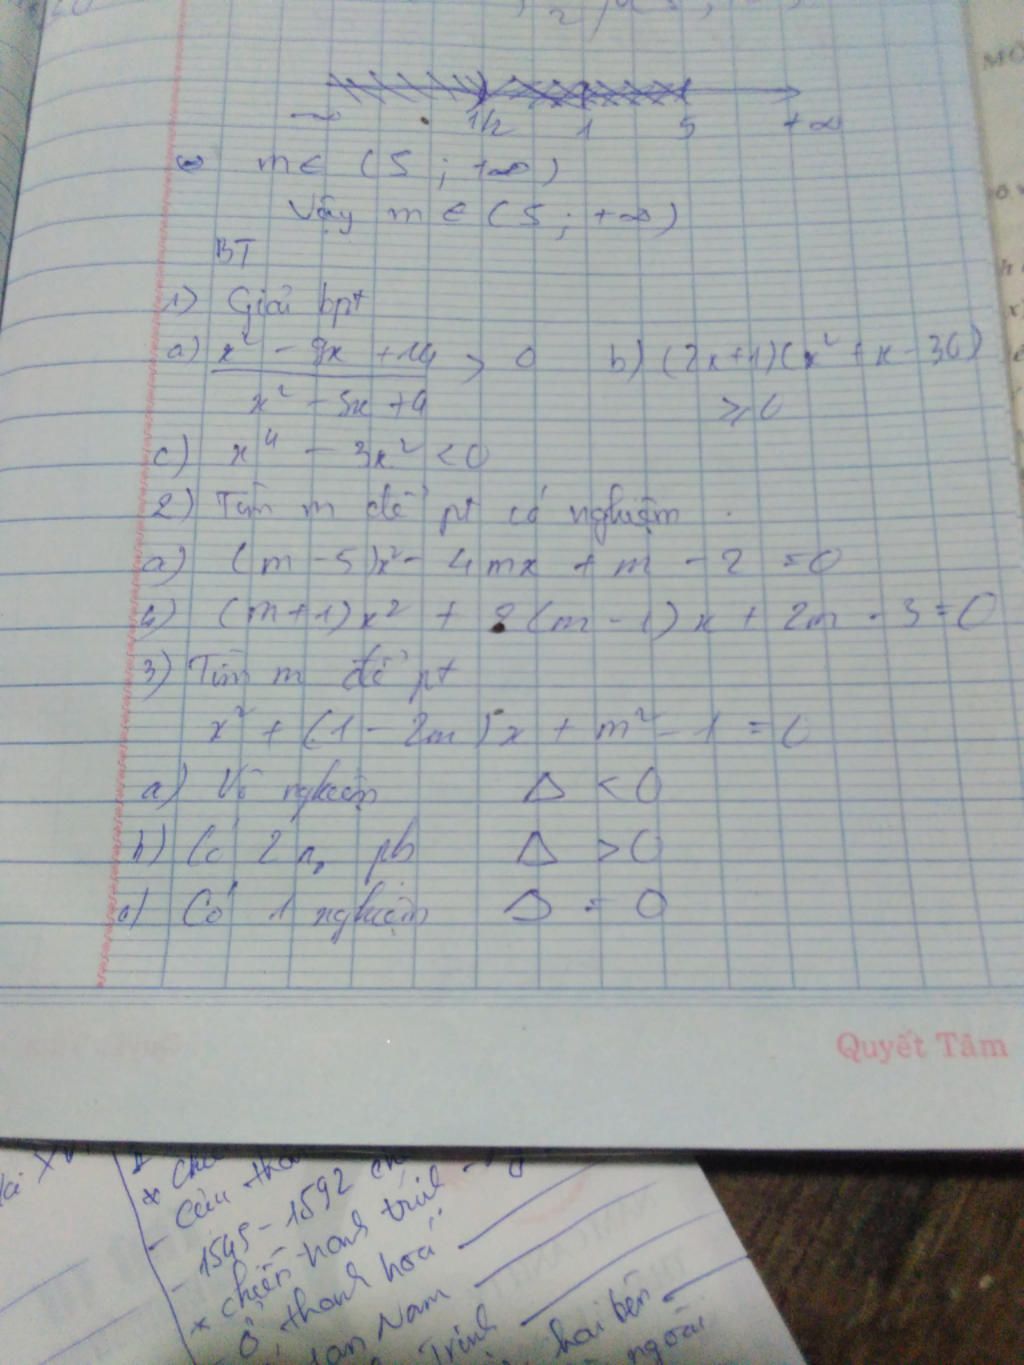 -∞ 1/2 1 5 +∞
m ∈ (5 ; +∞)
Vậy m ∈ (5 ; +∞)
BT
1) Giải bpt
a) (x² - 9x + 14)/(x² - 5x + 4) > 0 b) (2x+1)(x² + x - 30)
≥ 0
c) x⁴ - 3x² < 0
2) Tìm m để pt có nghiệm
a) (m - 5)x² - 4mx + m - 2 = 0
b) (m+1)x² + 2(m - 1)x + 2m - 3 = 0
3) Tìm m để pt
x² + (1 - 2m)x + m² - 1 = 0
a) Vô nghiệm Δ < 0
b) Có 2 n₀ pb Δ > 0
c) Có 1 nghiệm Δ = 0
Quyết Tâm
1545 - 1592
* chiến tranh trịnh
Ở thanh hoá
Nam
Trịnh
hai bên
ngoài